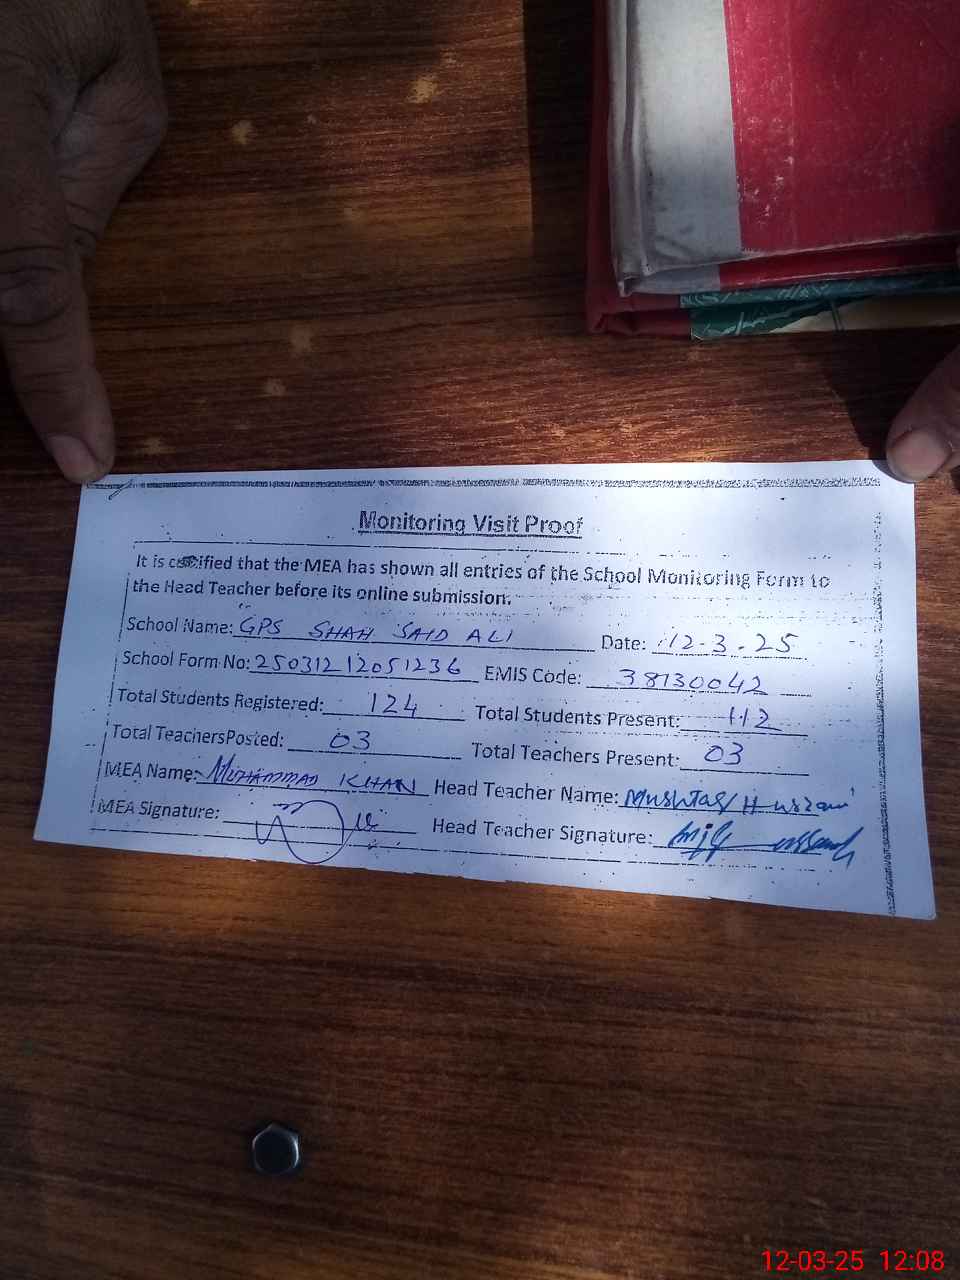 Monitoring Visit Proof
It is certified that the MEA has shown all entries of the School Monitoring Form to
the Head Teacher before its online submission.
School Name: GPS SHAH SAID ALI Date: 12-3-25
School Form No: 25031212051236 EMIS Code: 38130042
Total Students Registered: 124 Total Students Present: 112
Total TeachersPosted: 03 Total Teachers Present: 03
MEA Name: MUHAMMAD KHAN Head Teacher Name: Mushtaq
MEA Signature: Head Teacher Signature:
12-03-25 12:08